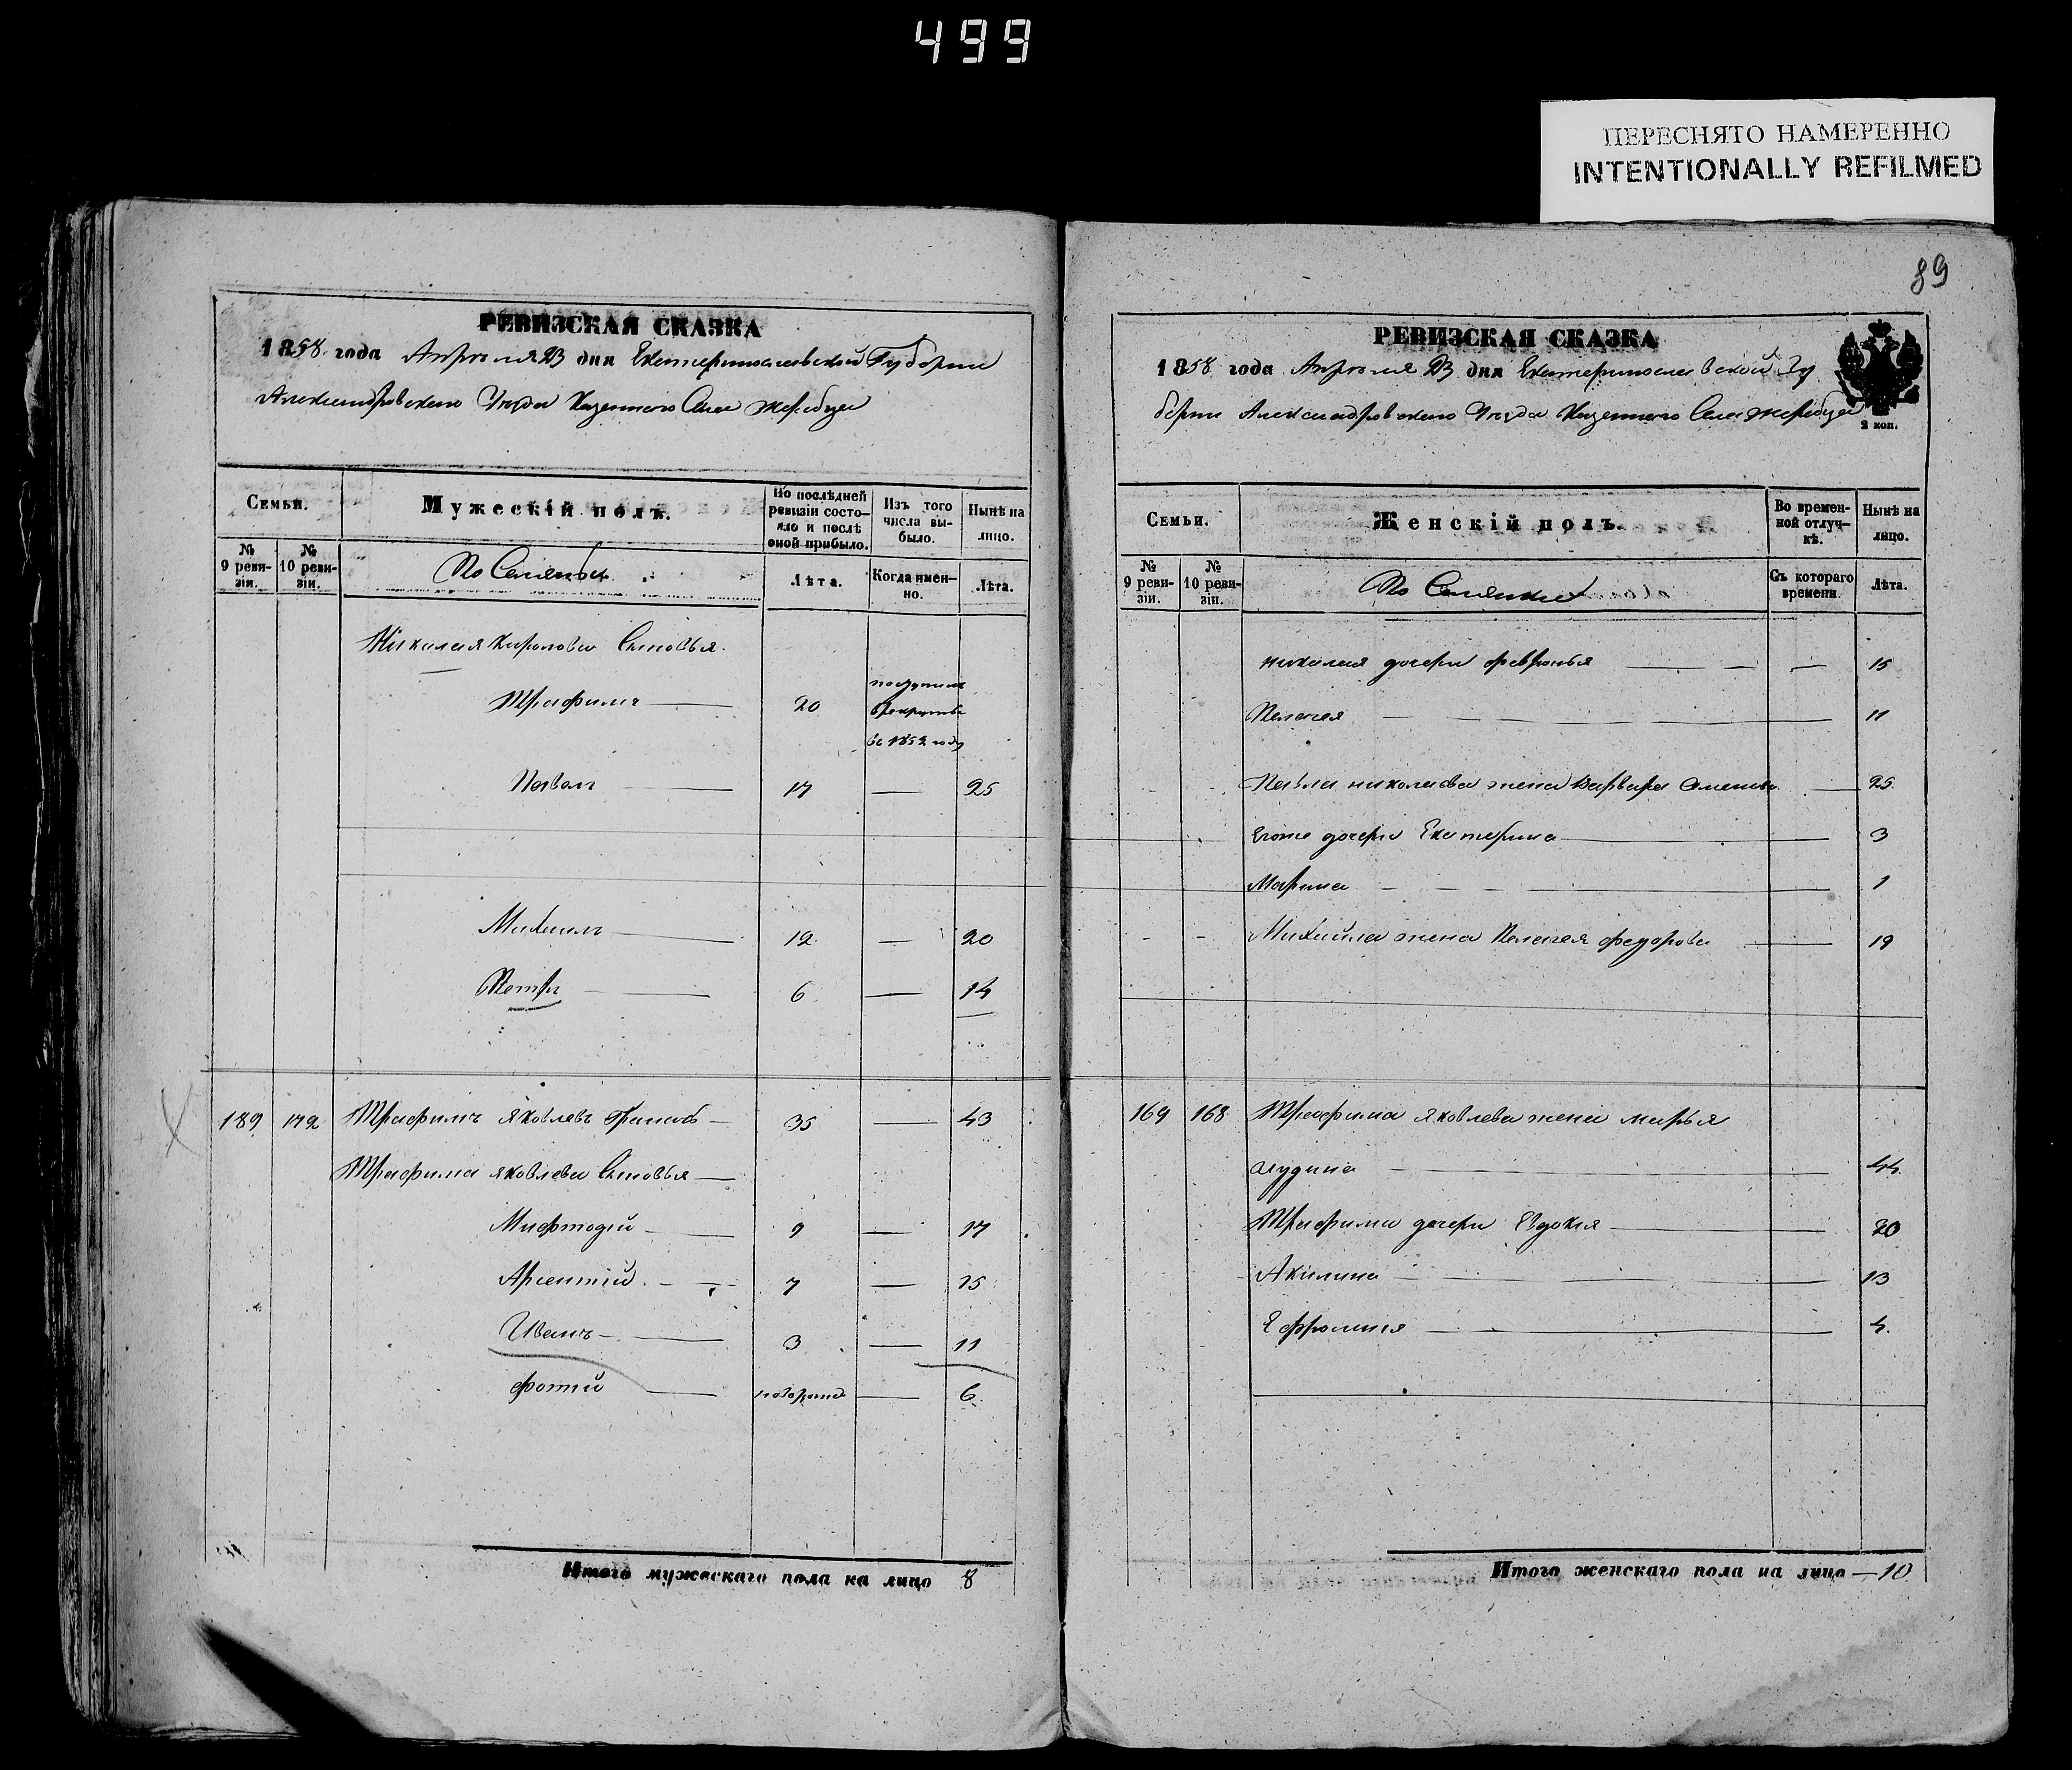 499
ПЕРЕСНЯТО НАМЕРЕННО
INTENTIONALLY REFILMED
РЕВИЗСКАЯ СКАЗКА
1858 года Апреля 23 дня Екатеринославской Губерни
Александровского Уезда Казенного Села Жеребца
Семьи.
Мужескій полъ.
По послѣдней ревизіи состояло и послѣ оной прибыло.
Изъ того числа выбыло.
Нынѣ на лицо.
№ 9 ревизіи.
№ 10 ревизіи.
Лѣта.
Когда именно.
Лѣта.
Николая Кирилова Сыновья
Трафимъ 20 поступил в рекруты
въ 1852 году
Павелъ 17 — 25
Михаилъ 12 — 20
Петръ 6 — 14
189 172 Трафимъ Яковлевъ 35 — 43
Трафима Яковлева Сыновья
Мифтодий 9 — 17
Арсентий 7 — 15
Иванъ 3 — 11
Фотий новорожд — 6
Итого мужескаго пола на лицо 8
89
РЕВИЗСКАЯ СКАЗКА
1858 года Апреля 23 дня Екатеринославской Гу
берни Александровского Уезда Казенного Села Жеребца
2 коп.
Семьи.
Женскій полъ.
Во временной отлучкѣ.
Нынѣ на лицо.
№ 9 ревизіи.
№ 10 ревизіи.
Съ котораго времени.
Лѣта.
Николая дочери Февронья — 15
Пелагея 11
Павла Николаева жена Варвара 25
Егоже дочери Екатерина 3
Марина 1
Михайла жена Пелагея Федорова 19
169 168 Трафима Яковлева жена Марья
44
Трафима дочери Евдокия 20
Акилина 13
Ефросиния 4
Итого женскаго пола на лицо — 10